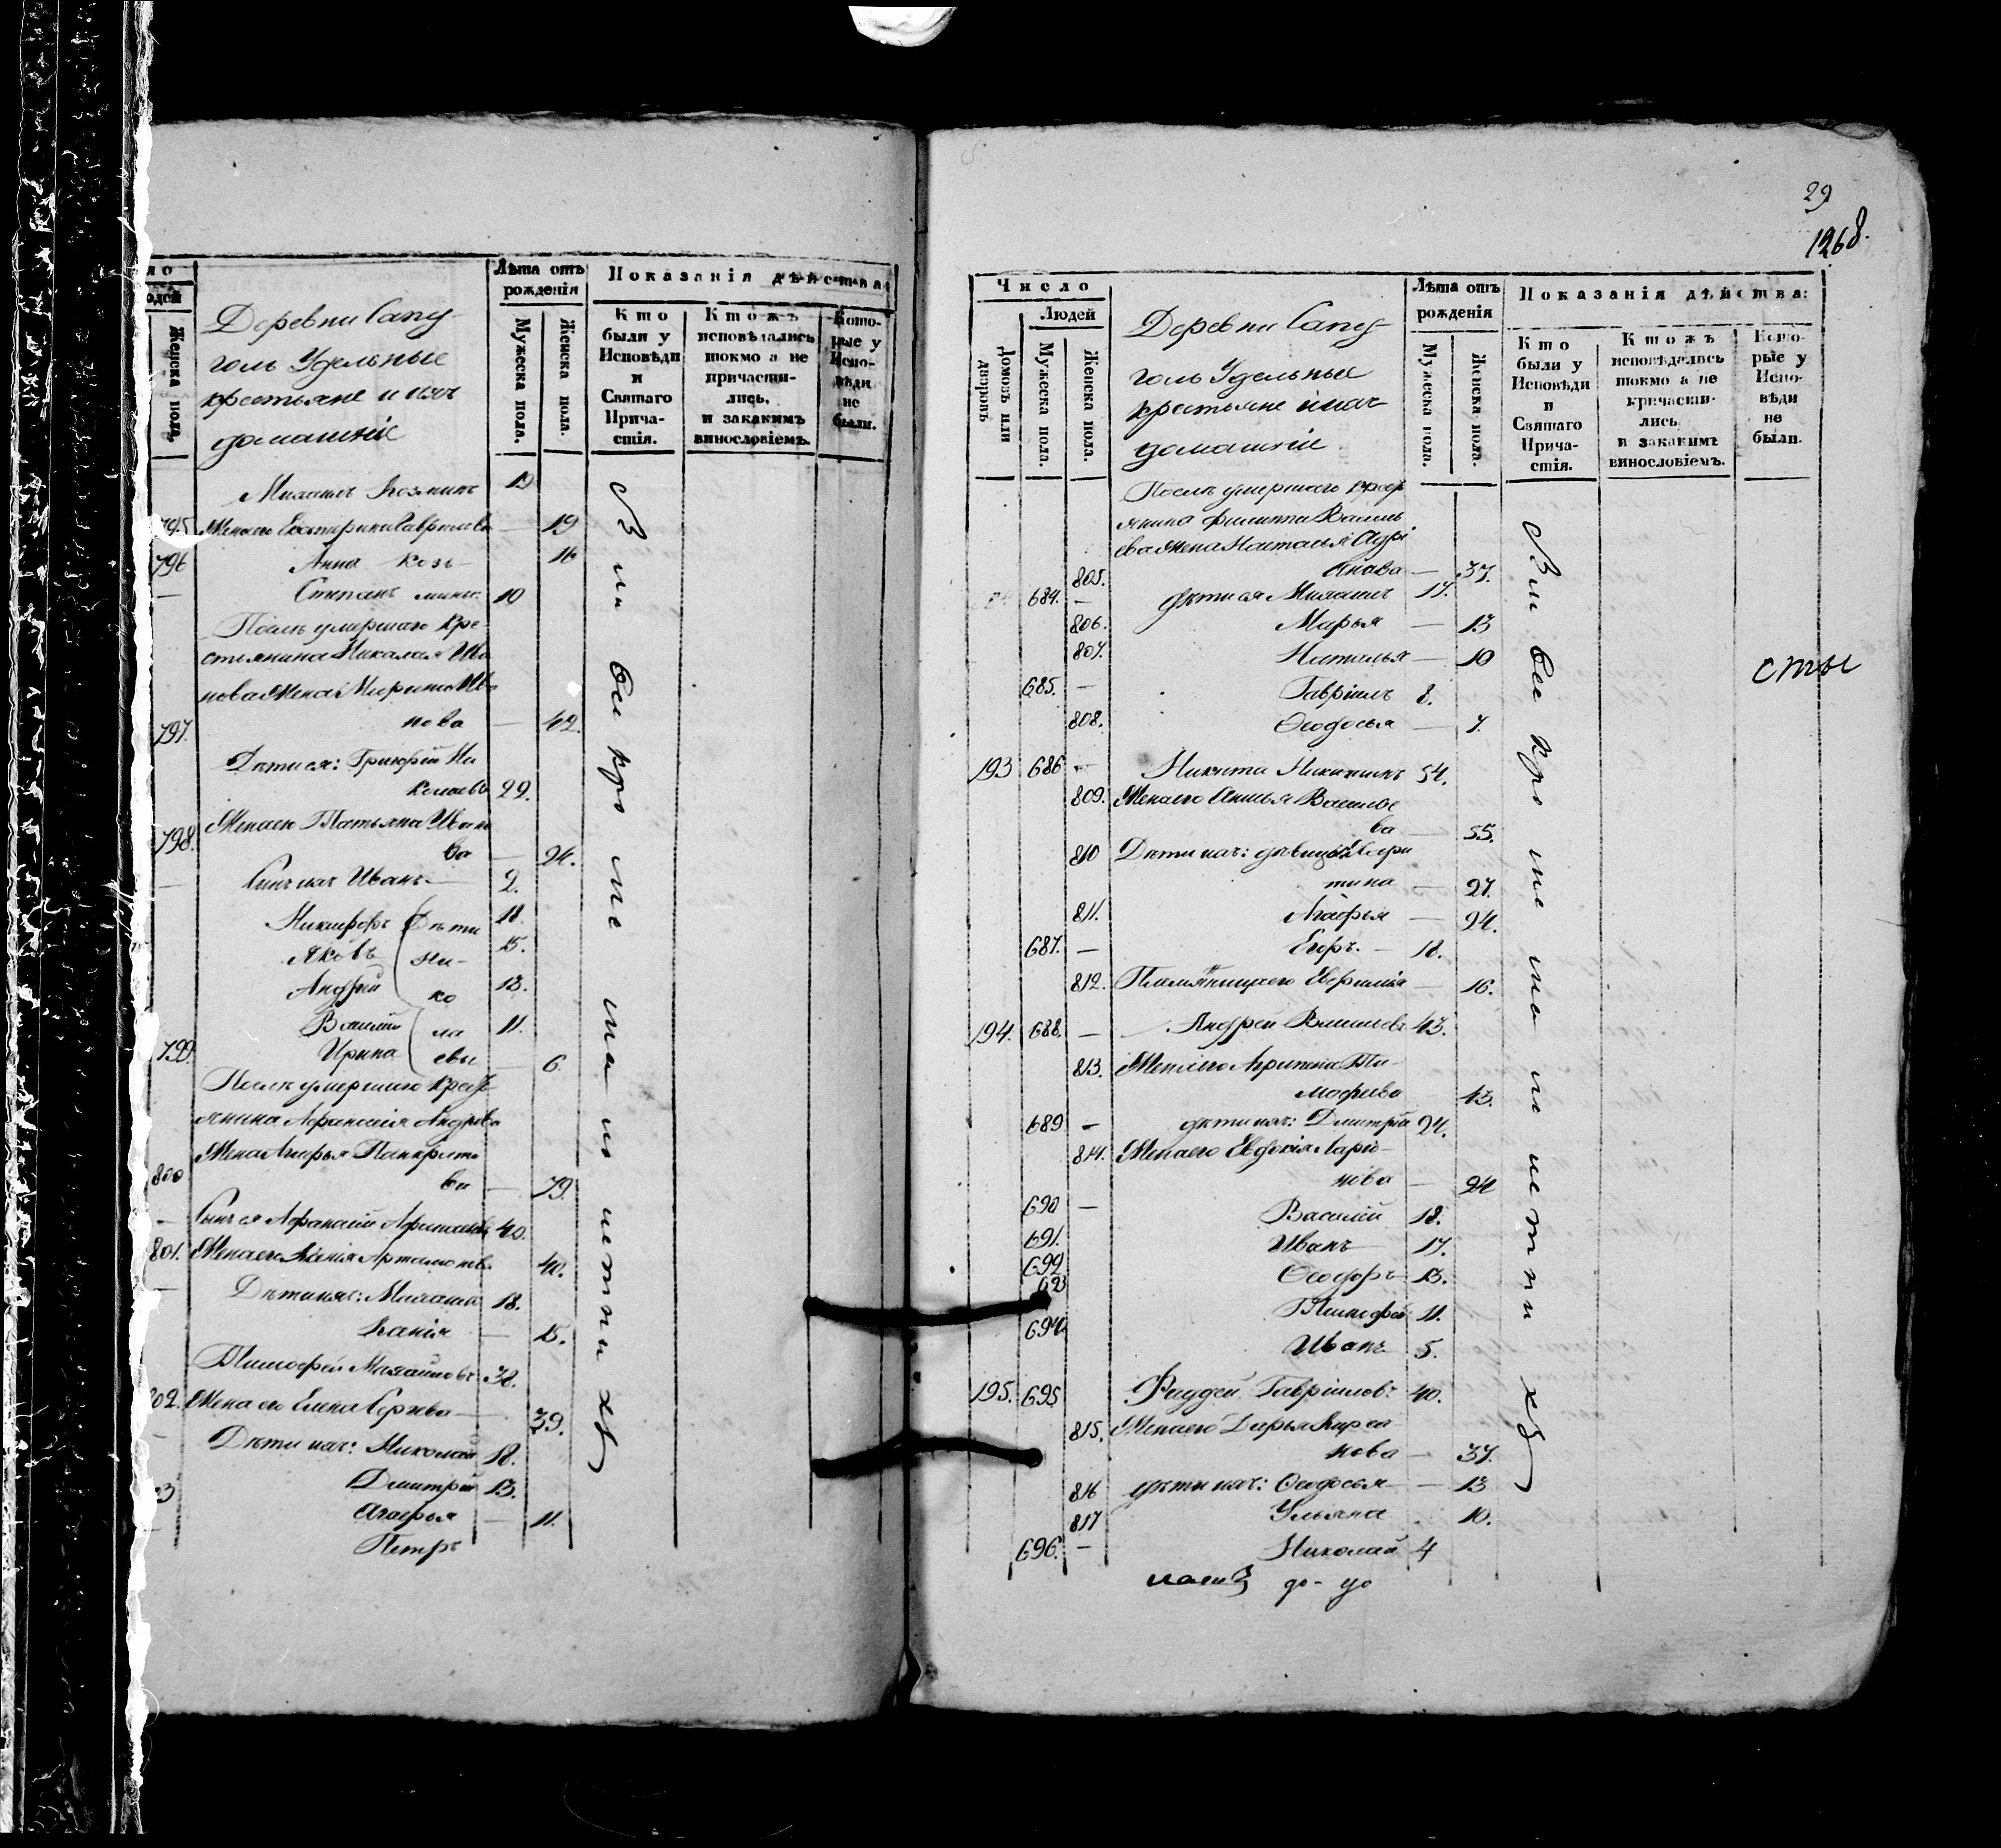 Деревни Сапу-
голь Удельные
крестьяне и ихъ
домашніе
Лѣта отъ рожденія
Мужеска пола.
Женска пола.
Показанія дѣйства:
Кто были у Исповѣди и Святаго Причастія.
Ктожъ исповѣдались токмо а не причастились, и закакимъ винословіемъ.
Которые у Исповѣди не были.
Женска пола.
Михаилъ Козминъ 19
795 Жена его Екатерина Гаврилова — 19
796 Анна Козь- 16
— Степанъ мины: 10
Послѣ умершаго кре
стьянина Николая Ива
нова жена Марина Ива
797. нова — 42.
Дѣти ея: Григорій Ни
колаевъ 22.
Жена его Татьяна Ивано
798. ва — 24.
— Сынъ ихъ Иванъ — 2.
Никифоръ Дѣти 18.
Яковъ Ни- 15.
Андрей ко 13.
Василій ла 11.
799. Ирина евы — 6.
Послѣ умершаго крест
янина Афанасія Андрева
Жена Марья Панкрато
800 ва — 79.
— Сынъ ея Афанасій Афанасьевъ 40.
801. Жена его Ксенія Артамонова 40.
— Дѣти ихъ: Михаилъ 18.
Ксенія — 15.
Тимофей Михайловъ 38.
802. Жена его Елена Сергева — 39.
— Дѣти ихъ: Николай 18.
Дмитрій 13.
Агафья — 11.
Петръ
29
1268.
Число
Домовъ или дворовъ
Людей
Мужеска пола.
Женска пола.
Деревни Сапу-
голь Удельные
крестьяне и ихъ
домашніе
Лѣта отъ рожденія
Мужеска пола.
Женска пола.
Показанія дѣйства:
Кто были у Исповѣди и Святаго Причастія.
Ктожъ исповѣдались токмо а не причастились, и закакимъ винословіемъ.
Которые у Исповѣди не были.
Послѣ умершаго крест
янина Филиппа Василь
ева жена Настасья Андрі
805. анова — 37.
684. — Дѣти ея Михаилъ 17.
806. Марья — 13
807. Наталья — 10
685. — Гавріилъ 8.
808. Ѳеодосья — 7.
сты
193 686 — Никита Никитинъ 54.
809. Жена его Анисья Василье
ва — 55.
810 Дѣти ихъ: дѣвица Екате
рина — 27.
811. Агафья — 24.
687. — Егоръ. — 18.
812. Племянница его Евфимія — 16.
194. 688. — Андрей Васильевъ 43.
813. Жена его Агрипена Ти-
мофеева 43.
689 — Дѣти ихъ: Дмитрій 24.
814. Жена его Евдокія Ларіо-
нова — 24
690 — Василій 18.
691. Иванъ 17.
692 Ѳеодоръ 13.
693 Тимофей 11.
694 Иванъ 5.
195. 695 Фаддей Гавріиловъ 40.
815. Жена его Дарья Кирса
нова — 37.
816 Дѣти ихъ: Ѳеодосья — 13
817 Ульяна 10.
696. — Николай 4